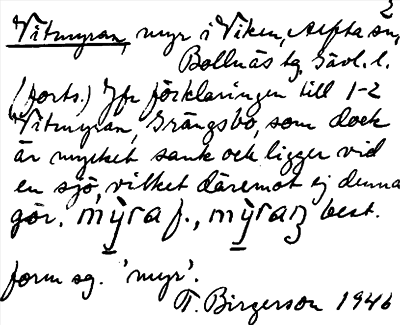 2
Vitmyran, myr i Viken, Alfta sn,
Bollnäs tg, Gävl. l.
(forts.) Jfr förklaringen till 1-2
Vitmyran, Grängsbo, som dock
är mycket sank och ligger vid
en sjö, vilket däremot ej denna
gör. mỳra f., mỳraɳ best.
form sg. 'myr'.
T. Birgerson 1946